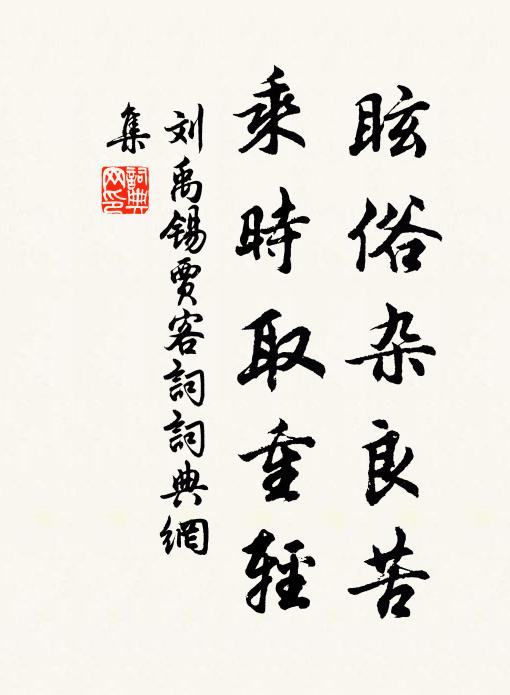 眩俗杂良苦
乘時取重輕
刘禹锡賈客詞詞典網
集
詞典
网印